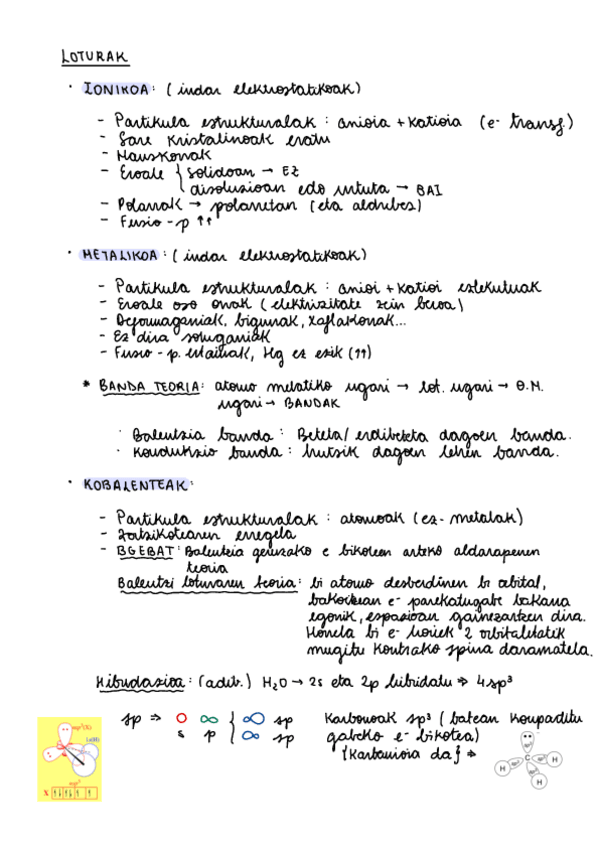 LOTURAK
· IONIKOA: (indar elektrostatikoak)
- Partikula estrukturalak: anioia + katioia (e⁻ transf.)
- Sare kristalinoak eratu
- Hauskorrak
- Eroale { Solidoan → EZ
disoluzioan edo urtuta → BAI
- Polarrak → polarretan (eta alderbiz)
- Fusio-p ↑↑
· METALIKOA: (indar elektrostatikoak)
- Partikula estrukturalak: anioi + katioi
- Eroale oso onak (elektrizitate zein beroa)
- Deformagarriak, bigunak, xaflakorrak...
- Ez dira solugarriak
- Fusio-p. ertainak, Hg ez ezik (↑↑)
* BANDA TEORIA: atomo metaliko ugari → lot. ugari → O.M.
ugari → BANDAK
· Balentzia banda: Beteta/erdibeteta dagoen banda.
· Kondukzio banda: hutsik dagoen lehen banda.
· KOBALENTEAK:
- Partikula estrukturalak: atomoak (ez-metalak)
- Zortzikotearen erregela
- BGEBAT: Balentzia geruzako e bikoteen arteko aldarapenen
teoria
Balentzi loturaren teoria: bi atomo desberdinen bi orbital,
bakoitzean e⁻ parekatugabe bakarra
egonik, espazioan gainezartzen dira.
Honela bi e⁻ horiek 2 orbitaletatik
mugitu kontrako spina daramatela.
Hibridazioa: (adib.) H₂O → 2s eta 2p hibridatu ⇒ 4sp³
sp ⇒ { sp
s p { sp
Karbonoak sp³ (batean konpartitu
gabeko e⁻ bikotea)
{Karbanioia da} ⇒
sp³
X
C
H H
H